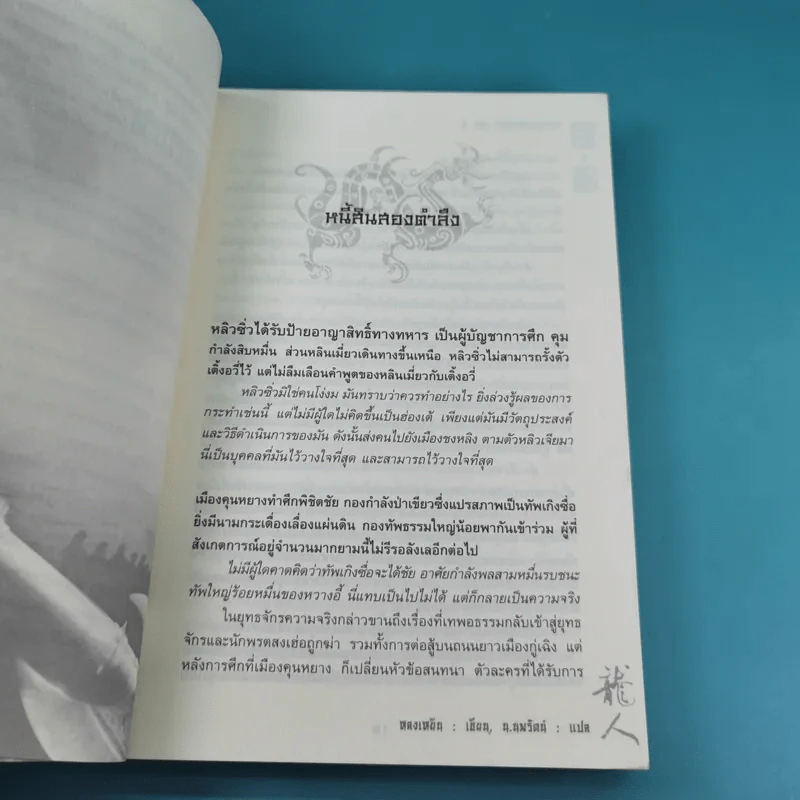 หนี้สินสองตำลึง
หลิวซิ่วได้รับป้ายอาญาสิทธิ์ทางทหาร เป็นผู้บัญชาการศึก คุม
กำลังสิบหมื่น ส่วนหลินเมี่ยวเดินทางขึ้นเหนือ หลิวซิ่วไม่สามารถรั้งตัว
เติ้งอวี่ไว้ แต่ไม่ลืมเลือนคำพูดของหลินเมี่ยวกับเติ้งอวี่
หลิวซิ่วมิใช่คนโง่งม มันทราบว่าควรทำอย่างไร ยิ่งล่วงรู้ผลของการ
กระทำเช่นนี้ แต่ไม่มีผู้ใดไม่คิดขึ้นเป็นฮ่องเต้ เพียงแต่มันมีวัตถุประสงค์
และวิธีดำเนินการของมัน ดังนั้นส่งคนไปยังเมืองชงหลิง ตามตัวหลิวเจียมา
นี่เป็นบุคคลที่มันไว้วางใจที่สุด และสามารถไว้วางใจที่สุด
เมืองคุนหยางทำศึกพิชิตชัย กองกำลังป่าเขียวซึ่งแปรสภาพเป็นทัพเกิงซื่อ
ยิ่งมีนามกระเดื่องเลื่องแผ่นดิน กองทัพธรรมใหญ่น้อยพากันเข้าร่วม ผู้ที่
สังเกตการณ์อยู่จำนวนมากยามนี้ไม่รีรอลังเลอีกต่อไป
ไม่มีผู้ใดคาดคิดว่าทัพเกิงซื่อจะได้ชัย อาศัยกำลังพลสามหมื่นรบชนะ
ทัพใหญ่ร้อยหมื่นของหวางอี้ นี่แทบเป็นไปไม่ได้ แต่ก็กลายเป็นความจริง
ในยุทธจักรความจริงกล่าวขานถึงเรื่องที่เทพอธรรมกลับเข้าสู่ยุทธ
จักรและนักพรตสงเฮ่อถูกฆ่า รวมทั้งการต่อสู้บนถนนยาวเมืองกู่เฉิง แต่
หลังการศึกที่เมืองคุนหยาง ก็เปลี่ยนหัวข้อสนทนา ตัวละครที่ได้รับการ
หลงเหยิน : เขียน, น.นพรัตน์ : แปล
龍人